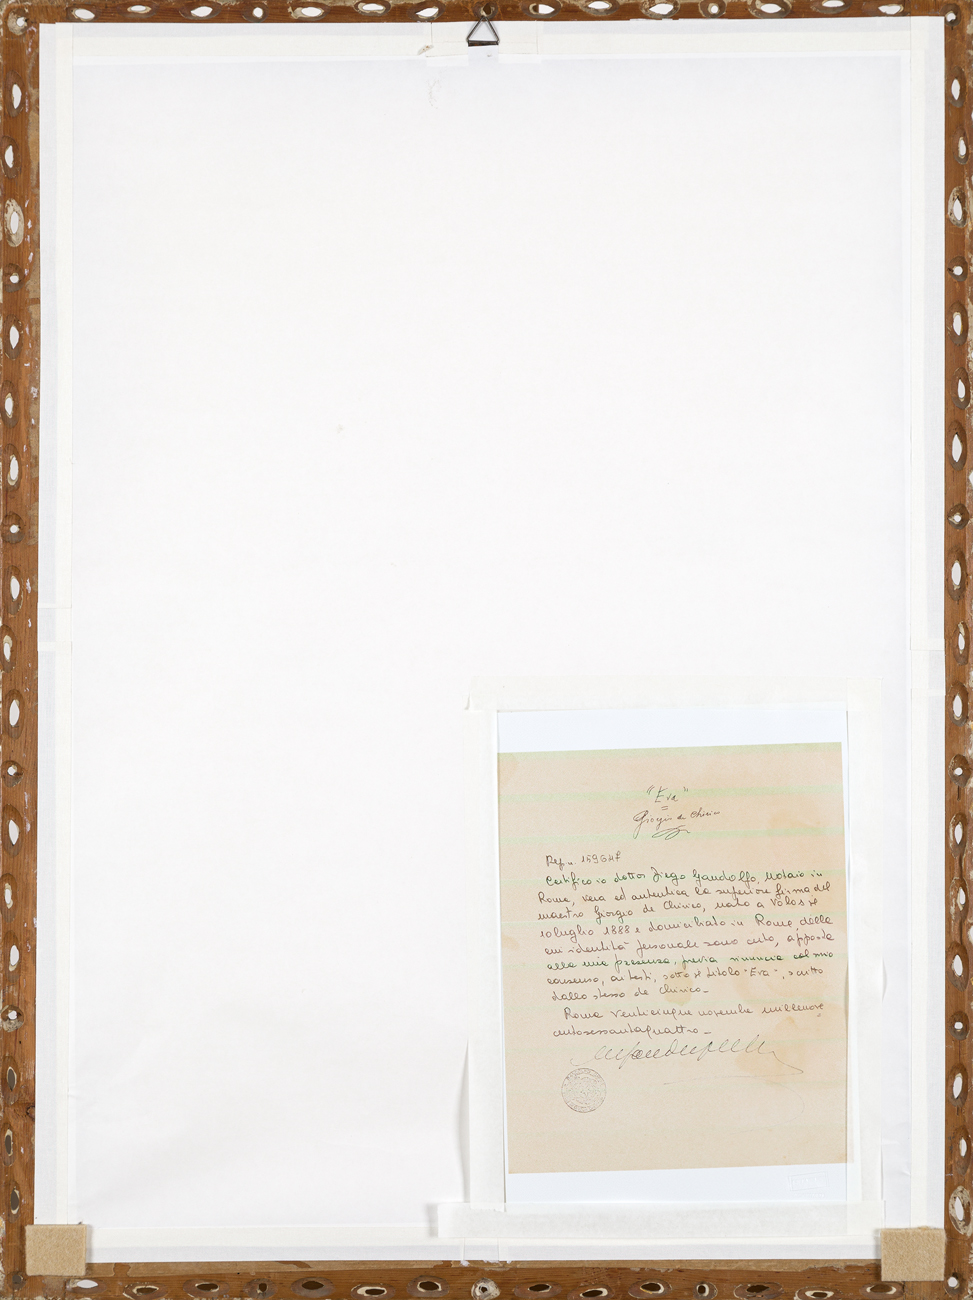 "Eva"
Giorgio de Chirico
Rep. n. 159647
Certifico io dottor Diego Gandolfo, Notaio in
Roma, vera ed autentica la superiore firma del
maestro Giorgio de Chirico, nato a Volos il
10 luglio 1888 e domiciliato in Roma, della
cui identità personale sono certo, apposta
alla mia presenza, previa rinuncia col mio
consenso, ai testi, sotto il titolo "Eva", scritto
dallo stesso de Chirico_
Roma venticinque novembre millenove
centosessantaquattro_